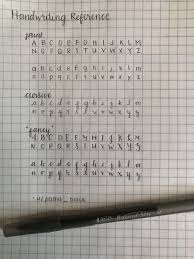 Handwriting Reference
print
A B C D E F G H I J K L M
N O P Q R S T U V W X Y Z
a b c d e f g h i j k l m
n o p q r s t u v w x y z
cursive
a b c d e f g h i j k l m
n o p q r s t u v w x y z
"fancy"
A B C D E F G H I J K L M
N O P Q R S T U V W X Y Z
a b c d e f g h i j k l m
n o p q r s t u v w x y z